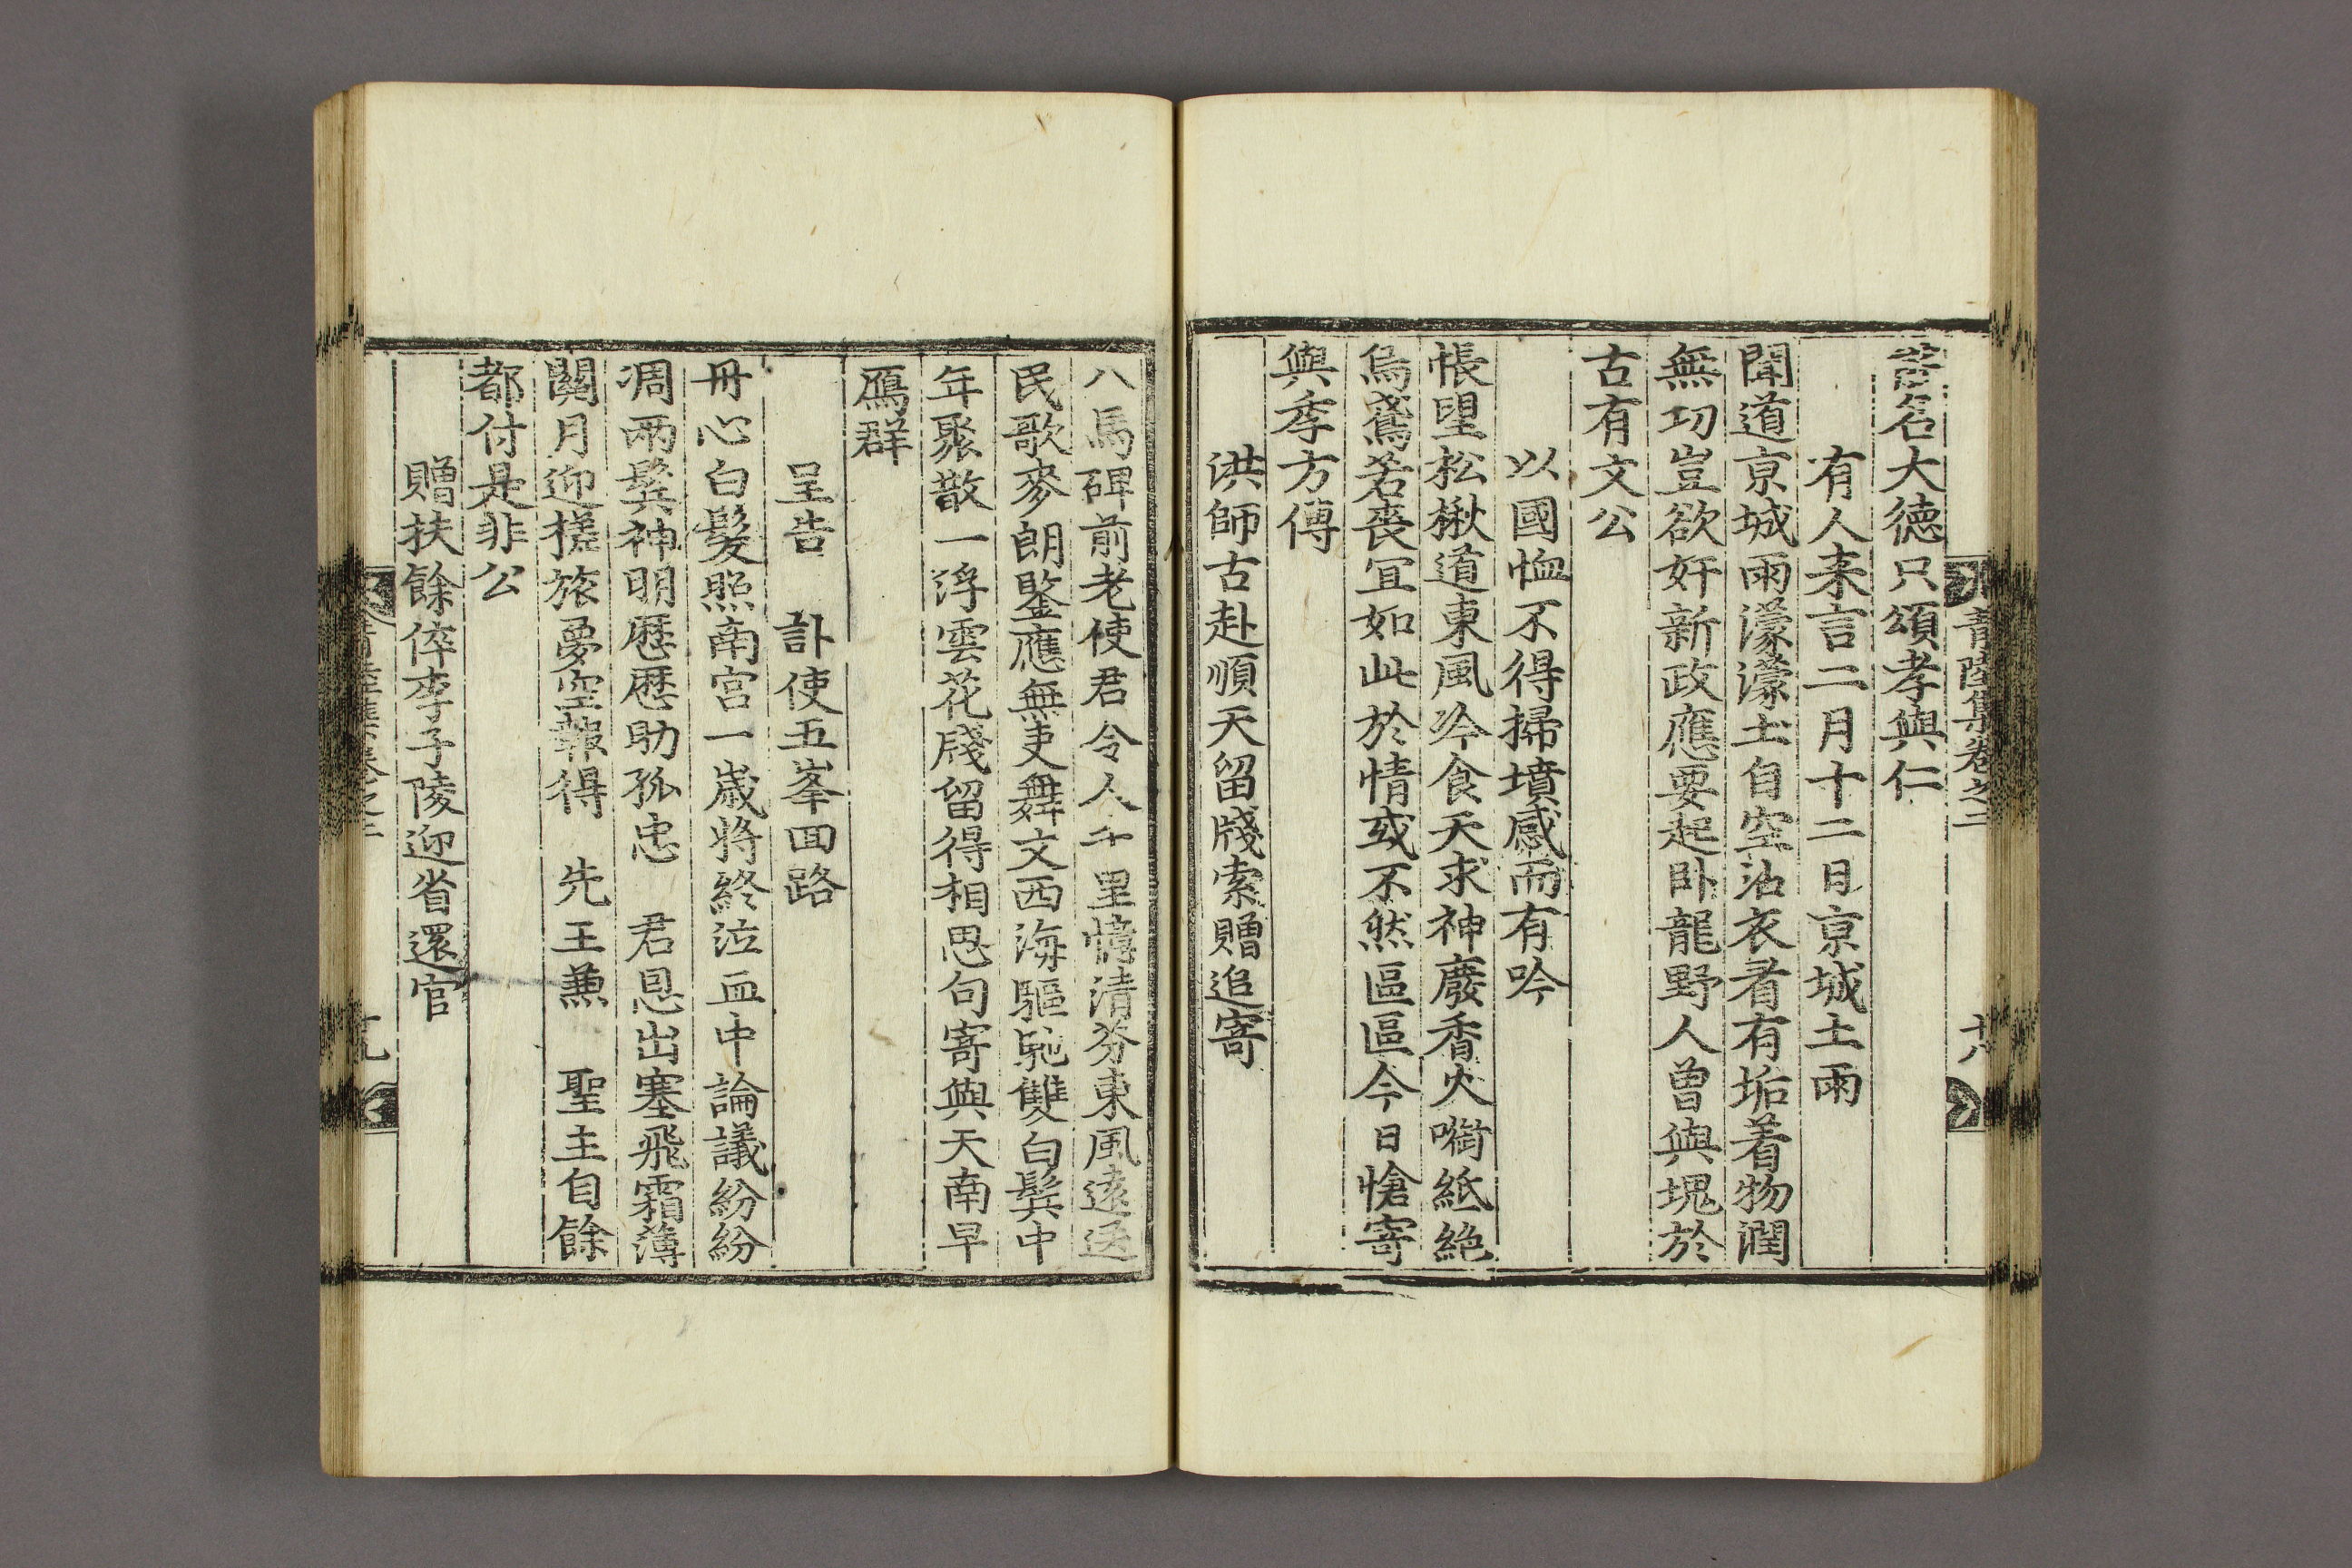 名大德只頌孝與仁
有人来言二月十二日京城土雨
聞道京城雨濛濛土自空沾衣看有垢着物潤
無功豈欲奸新政應要起卧龍野人曾與塊於
古有文公
以國恤不得掃墳感而有吟
悵望松楸道東風冷食天求神廢香火嚼紙絶
烏鳶若喪宜如此於情或不然區區今日愴寄
與季方傅
洪師古赴順天留牋索贈追寄
青陸集卷之二
十八
八馬碑前老使君令人千里憶清芬東風遠送
民歌麥朗鑒應無吏舞文西海驅馳雙白鬢中
年聚散一浮雲花牋留得相思句寄與天南早
鴈群
呈告 訃使五峯回路
丹心白髮照南宮一歲將終泣血中論議紛紛
凋兩鬢神明歷歷助孤忠 君恩出塞飛霜薄
關月迎槎旅夢空報得 先王兼 聖主自餘
都付是非公
贈扶餘倅李子陵迎省還官